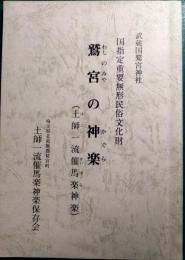 武蔵国鷲宮神社
国指定重要無形民俗文化財
鷲宮の神楽
わしのみや かぐら
(土師一流催馬楽神楽)
埼玉県北葛飾郡鷲宮町
土師一流催馬楽神楽保存会